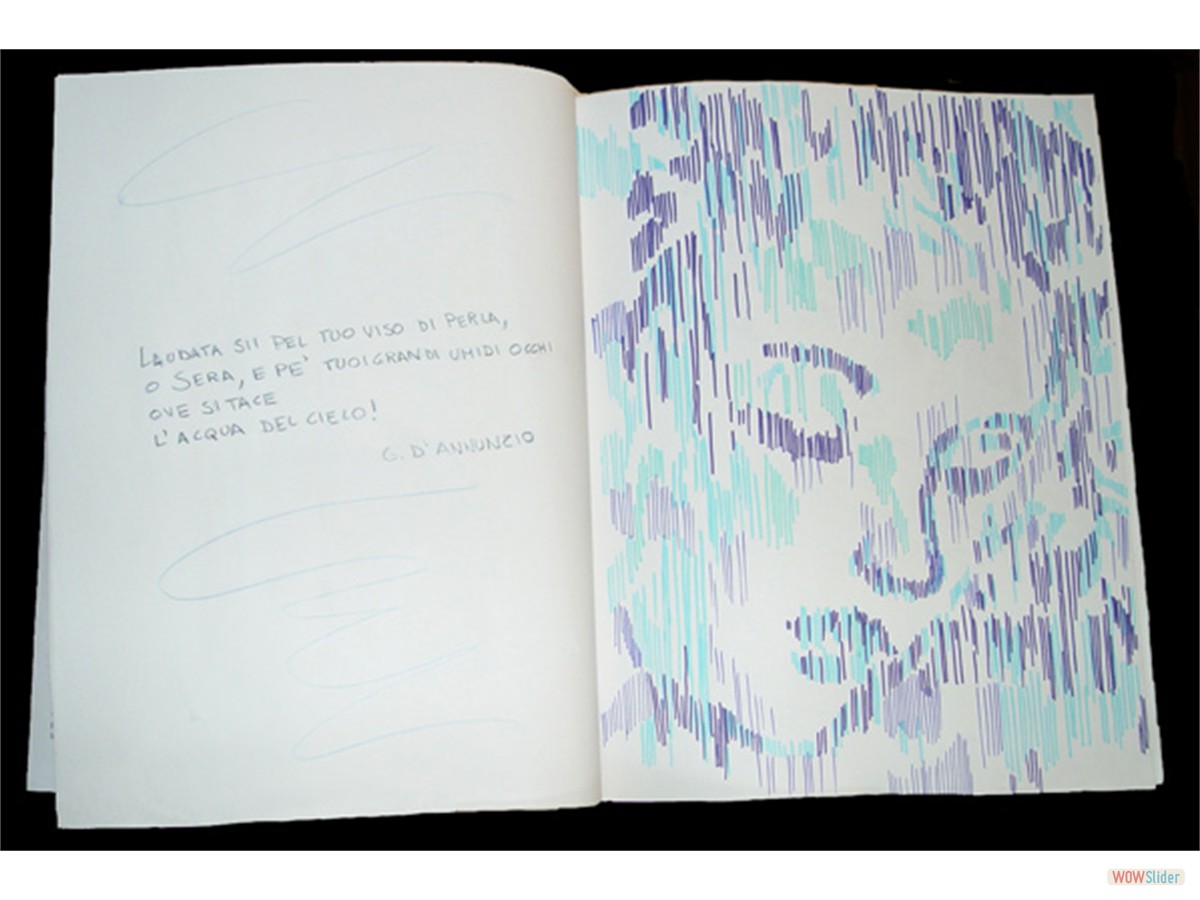 LAUDATA SII PEL TUO VISO DI PERLA,
O SERA, E PE' TUOI GRANDI UMIDI OCCHI
OVE SI TACE
L'ACQUA DEL CIELO!
G. D'ANNUNZIO
WOWSlider